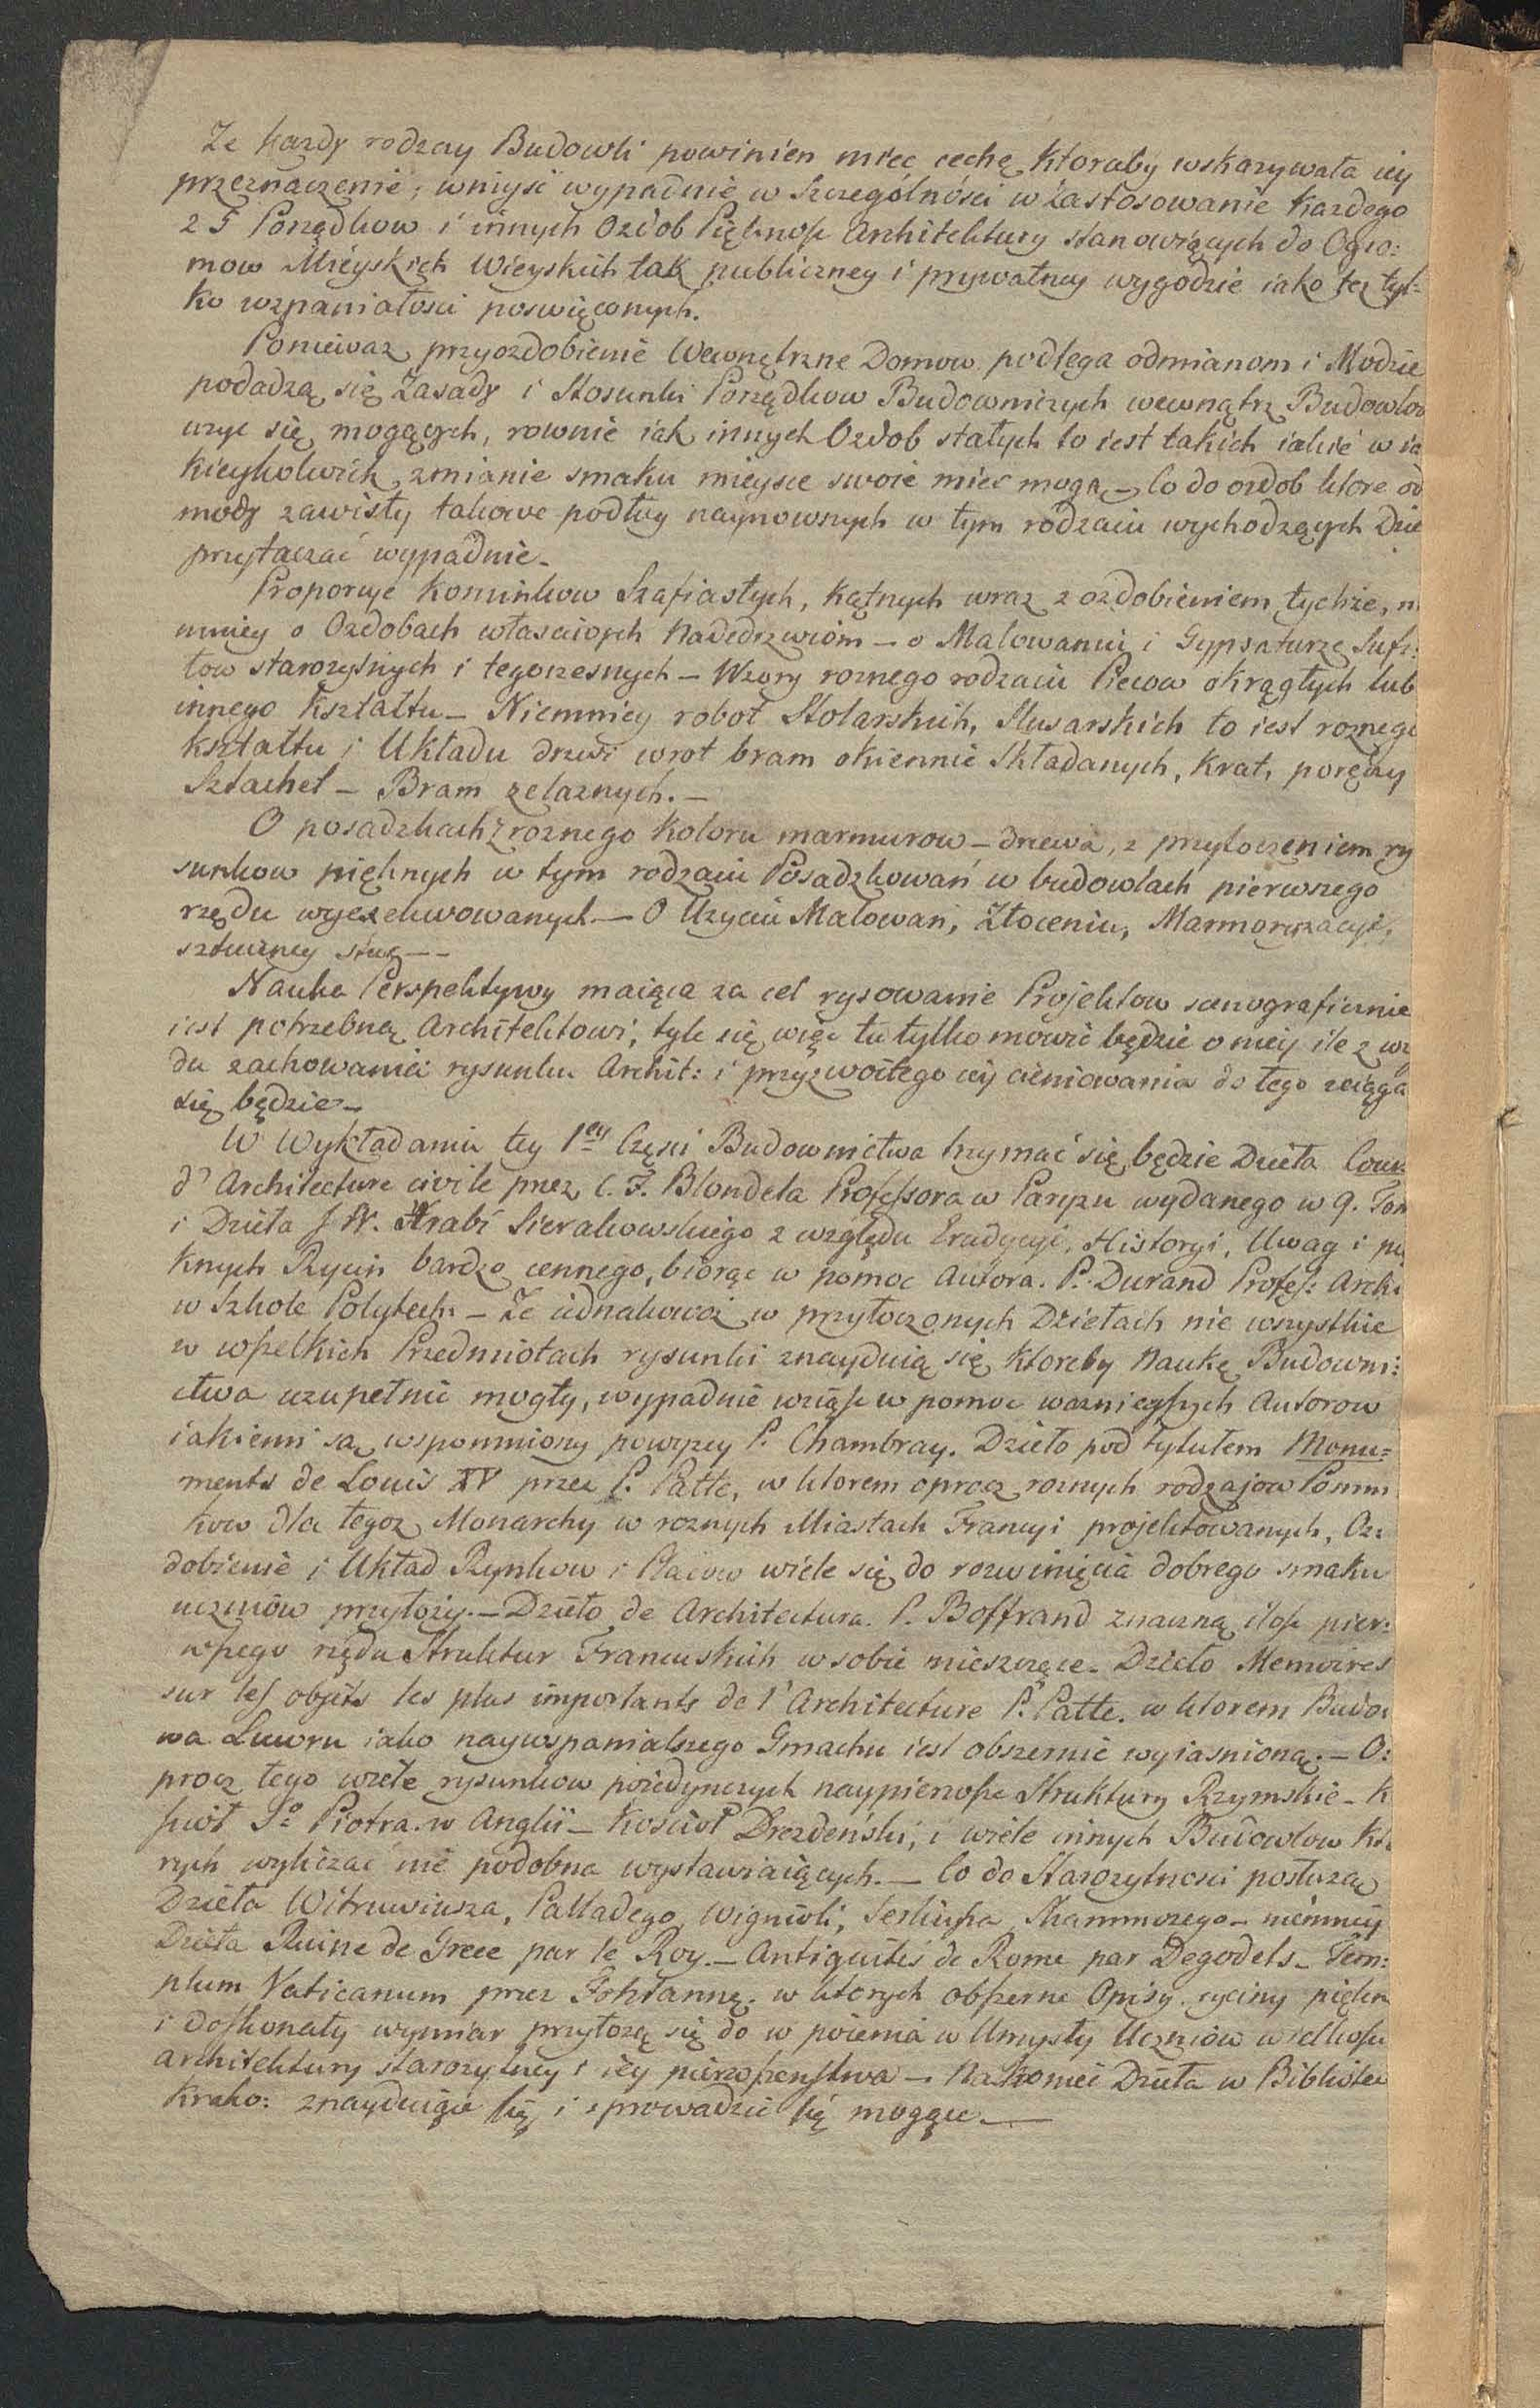 Ze kazdy rodzay Budowli powinien miec cechę ktoraby wskazywała iey
przeznaczenie; wniyść wypadnie w Szczególności w Zastosowanie kazdego
z 5 Porządkow i innych Ozdob Piękność Architektury stanowiących do Ogro:
mow Mieyskich Wieyskich tak publiczney i prywatney wygodzie iako tez tyl=
ko wspaniałosci poswięconych.
Poniewaz przyozdobienie Wewnętrzne Domow podlega odmianom i Modzie
podadzą się Zasady i Stosunki Porządkow Budowniczych wewnątrz Budowlow
uzyc się mogących, rownie iak innych Ozdob stałych to iest takich iakie w ia
kieykolwiek zmianie smaku mieysce swoie miec mogą – Co do ozdob ktore od
mody zawisły takowe podług naynowszych w tym rodzaiu wychodzących Dzie
przytaczać wypadnie –
Proporcye Kominkow Szafiastych, Kątnych wraz z ozdobieniem tychże, n
mniey o Ozdobach własciwych Nadedrzwiom – o Malowaniu i Gypsaturze Sufi:
tow starozytnych i tegoczesnych – Wzory roznego rodzaiu Piecow okrągłych lub
innego Kształtu – Niemniey robot Stolarskich, Slusarskich to iest roznego
kształtu i Układu drzwi wrot bram okiennic Składanych, Krat, poręczy
Sztachet – Bram zelaznych. –
O posadzkach z roznego koloru marmurow – drzewa, z przytoczeniem ry
sunkow pięknych w tym rodzaiu Posadzkowań w budowlach pierwszego
rzędu wyexekwowanych – O Uzyciu Malowań, Złoceniu, Marmoryzacyi,
sztuczney – –
Nauka Perspektywy maiąca za cel rysowanie Projektow scenograficznie
iest potrzebną Architektowi, tyle się więc tu tylko mowić będzie o niey ile z wz
du zachowania rysunku Archit: i przyzwoitego iey cieniowania do tego sciąga
się będzie –
W Wykładaniu tey 1ey Częsci Budownictwa trzymać się będzie Dzieła Cour
d'Architecture civile przez C. F. Blondela Professora w Paryzu wydanego w 9. Tom
i Dzieła J W. Hrabi Sierakowskiego z względu Erudycyi, Historyi, Uwag i pię
knych Rycin bardzo cennego, biorąc w pomoc Autora. P. Durand Profes: Archi
w Szkole Polytech: – Ze iednakowoż w przytoczonych Dziełach nie wszystkie
w wszelkich Przedmiotach rysunki znayduią się ktoreby Naukę Budowni:
ctwa uzupełnić mogły, wypadnie wziąść w pomoc wazniejszych Autorow
iakiemi są wspomniony powyzey P. Chambray. Dzieło pod tytułem Monu=
ments de Louis XV przez P. Patte, w ktorem oprocz roznych rodzajow Pomni
kow dla tegoz Monarchy w roznych Miastach Francyi projektowanych, Oz:
dobienie i Układ Rynkow i Placow wiele się do rozwinięcia dobrego smaku
uczniów przyłoży. – Dzieło de Architectura. P. Boffrand znaczną ilość pier:
wszego rzędu Struktur Francuskich w sobie mieszczące – Dzieło Memoires
sur les objets les plus importants de l'Architecture P. Patte. w ktorem Budo:
wa Luwru iako naywspanialszego Gmachu iest obszernie wyiasnioną. – O:
procz tego wiele rysunkow poiedynczych naypierwsze Struktury Rzymskie – K
sciół Sº Piotra. w Anglii – Kościoł Drezdeński, i wiele innych Budowlow Kto
rych wyliczać nie podobna wystawiaiących. – Co do Starozytnosci posłuzą
Dzieła Witruwiusza, Palladego, Wignioli, Serliusza, Skammozego – niemniey
Dzieła Ruine de Grece par le Roy. – Antiquités de Rome par Degodets – Tem:
plum Vaticanum przez Fontannę. w ktorych obszerne Opisy. ryciny piękn
i doskonały wymiar przyłożą się do w poienia w Umysły Uczniów wielkości
architektury starozytney i iey pierwszenstwa – Nakoniec Dzieła w Bibliotec
Krako: znayduiące się i sprowadzić się mogące. –